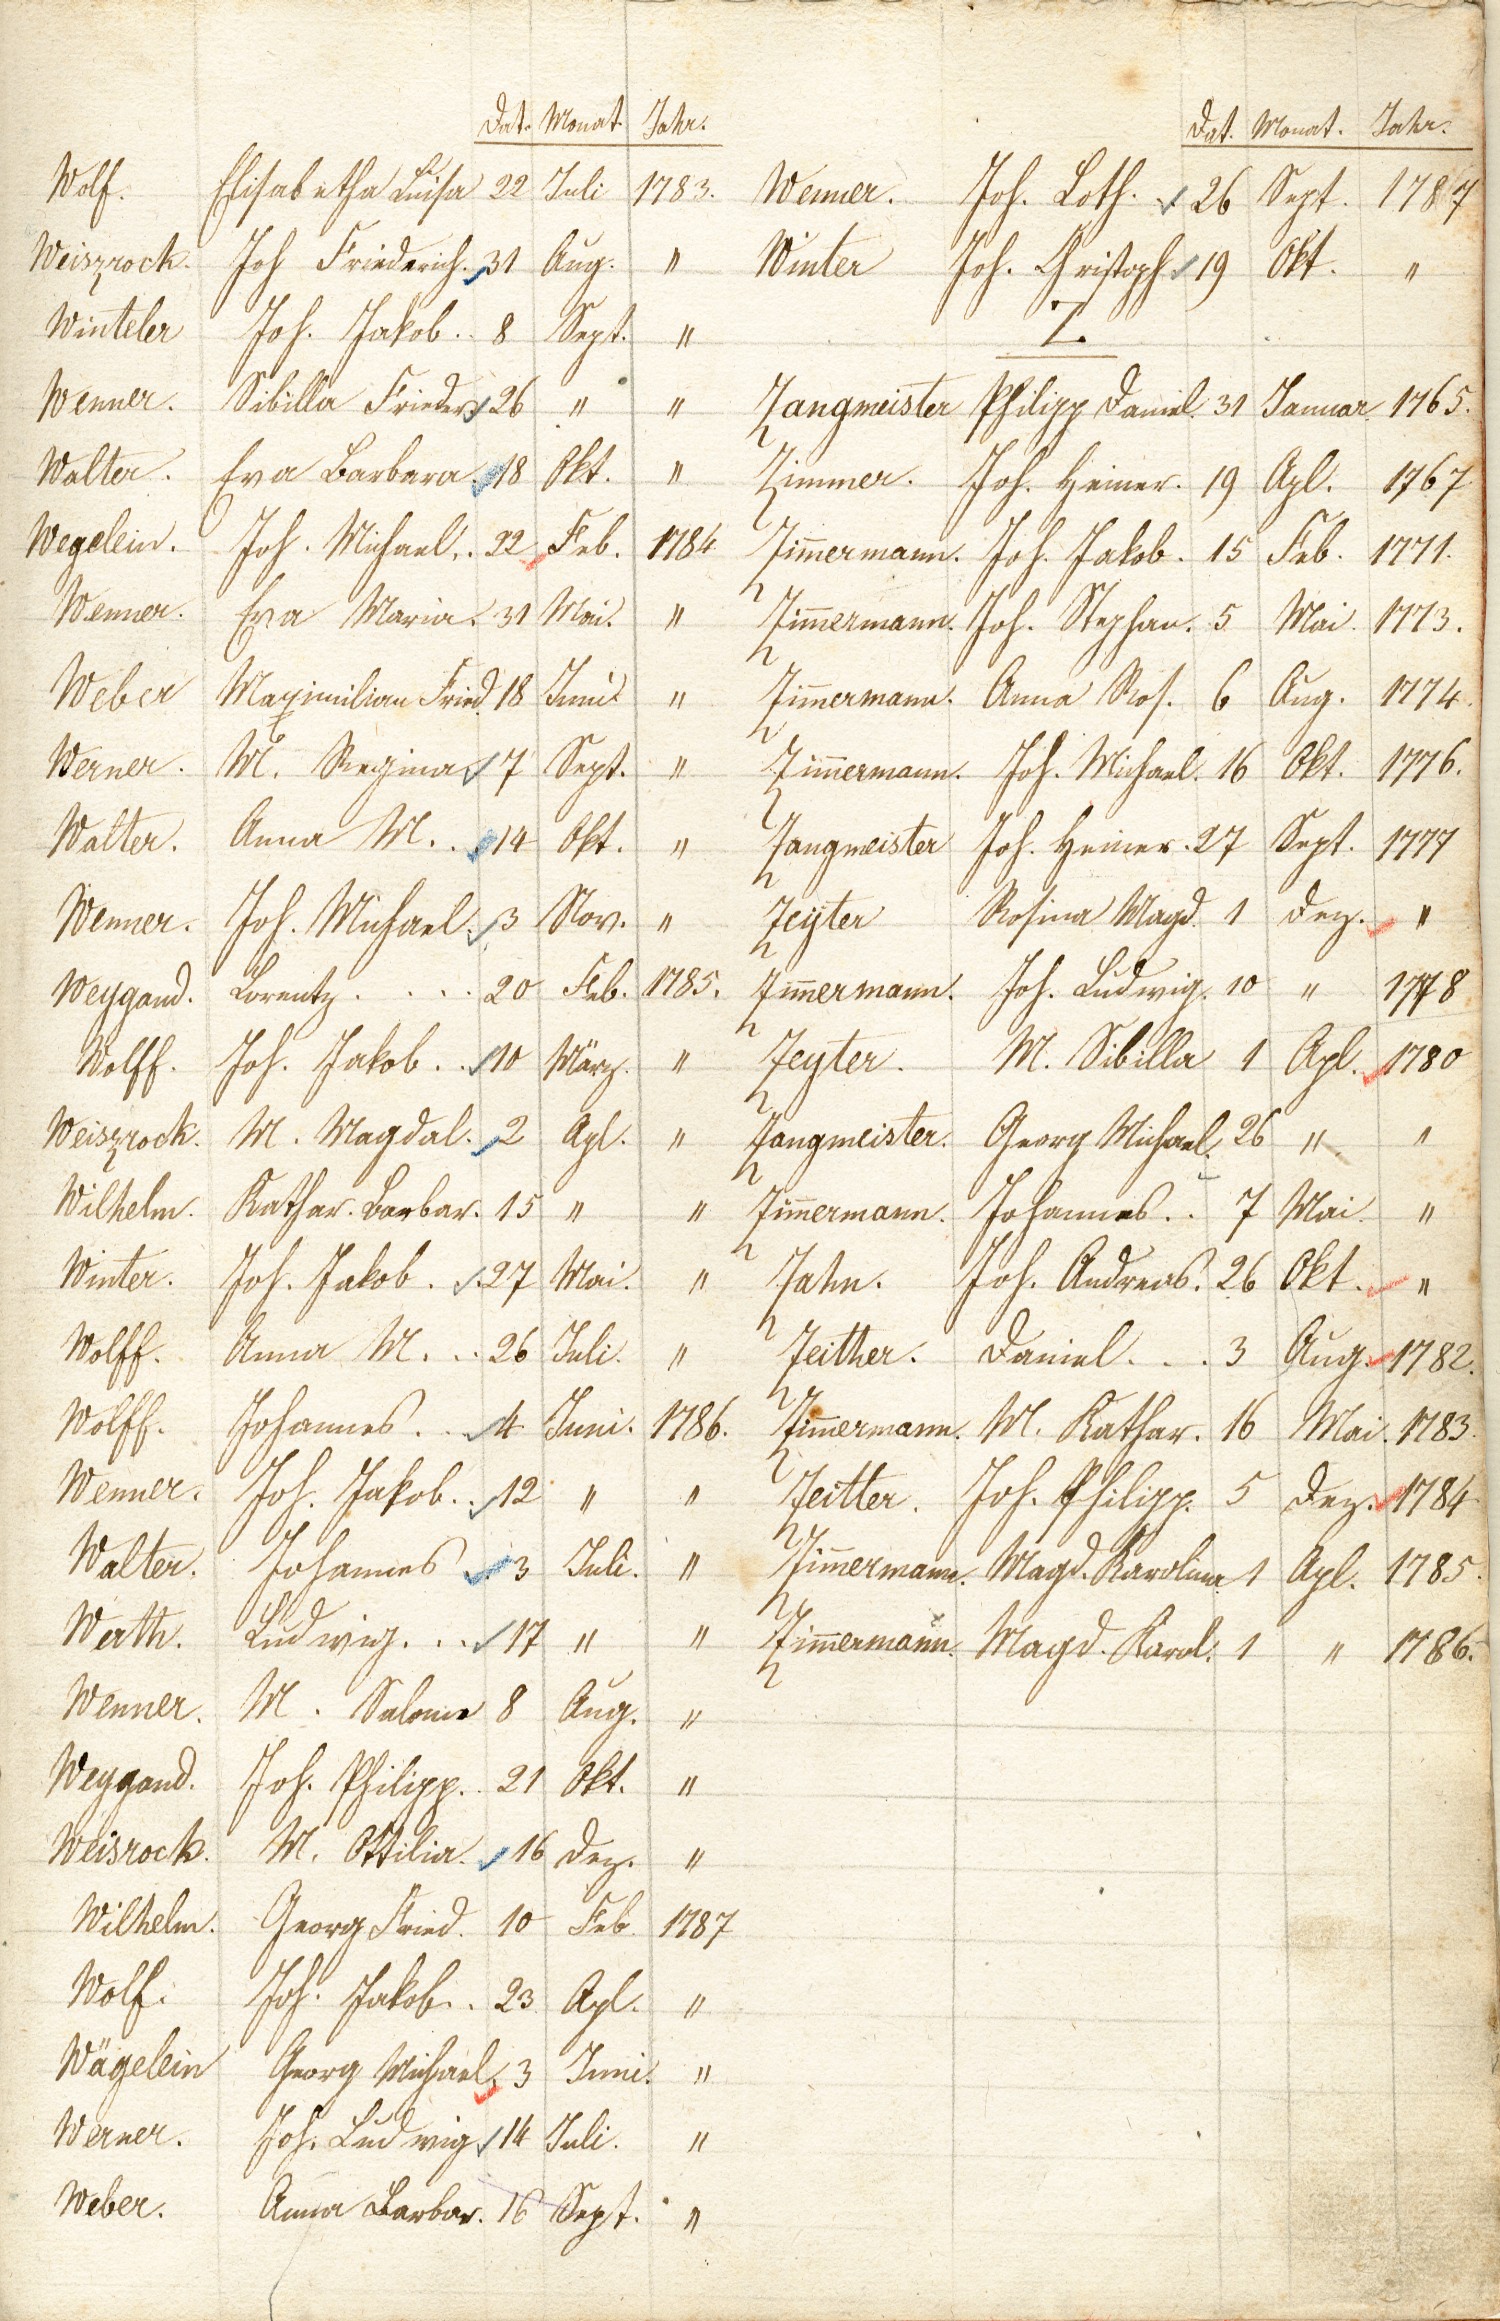 Dat. Monat. Jahr.
Wolf. Elisabetha Luisa 22 Juli 1783.
Weiszrock. Joh Friederich. 31 Aug. "
Winteler Joh. Jakob.. 8 Sept. "
Wenner. Sibilla Frieder. 26 " "
Walter. Eva Barbara. 18 Okt. "
Wegelein. Joh. Michael.. 22 Feb. 1784
Wenner. Eva Maria. 31 Mai. "
Weber Maximilian Fried. 18 Juni "
Werner. M. Regina 7 Sept. "
Walter. Anna M. . . 14 Okt. "
Wenner. Joh. Michael. 3 Nov. "
Weygand. Lorentz. . . . 20 Feb. 1785.
Wolff. Joh. Jakob. . 10 März. "
Weiszrock. M. Magdal. 2 Apl. "
Wilhelm. Kathar. Barbar. 15 " "
Winter. Joh. Jakob. . 27 Mai. "
Wolff. Anna M. . . 26 Juli. "
Wolff. Johannes. . . 4 Juni. 1786.
Wenner. Joh. Jakob. . 12 " "
Walter. Johannes . 3 Juli. "
Werth. Ludwig. . . 17 " "
Wenner. M. Salome 8 Aug. "
Weygand. Joh. Philipp. . 21 Okt. "
Weisrock. M. Ottilia. 16 Dez. "
Wilhelm. Georg Fried. 10 Feb. 1787
Wolf. Joh. Jakob. . 23 Apl. "
Wägelein Georg Michael. 3 Juni. "
Werner. Joh. Ludwig 14 Juli. "
Weber. Anna Barbar. 16 Sept. "
Dat. Monat. Jahr.
Wenner. Joh. Loth. 26 Sept. 1787
Winter Joh. Christoph 19 Okt. "
Z.
Zangmeister Philipp Daniel. 31 Januar 1765.
Zimmer. Joh. Heiner. 19 Apl. 1767
Zim̅ermann. Joh. Jakob. 15 Feb. 1771.
Zim̅ermann. Joh. Stephan. 5 Mai. 1773.
Zim̅ermann. Anna Ros. 6 Aug. 1774.
Zim̅ermann. Joh. Michael. 16 Okt. 1776.
Zangmeister Joh. Heiner. 27 Sept. 1777
Zeyter Rosina Magd. 1 Dez. "
Zim̅ermann. Joh. Ludwig. 10 " 1778
Zeyter. M. Sibilla 1 Apl. 1780
Zangmeister. Georg Michael. 26 " "
Zim̅ermann. Johannes. . 7 Mai. "
Zahn. Joh. Andreas. 26 Okt. "
Zeither. Daniel. . . 3 Aug. 1782.
Zim̅ermann. M. Kathar. 16 Mai. 1783.
Zeitter. Joh. Philipp. 5 Dez. 1784
Zim̅ermann. Magd. Karolina 1 Apl. 1785.
Zim̅ermann. Magd. Karol. 1 " 1786.